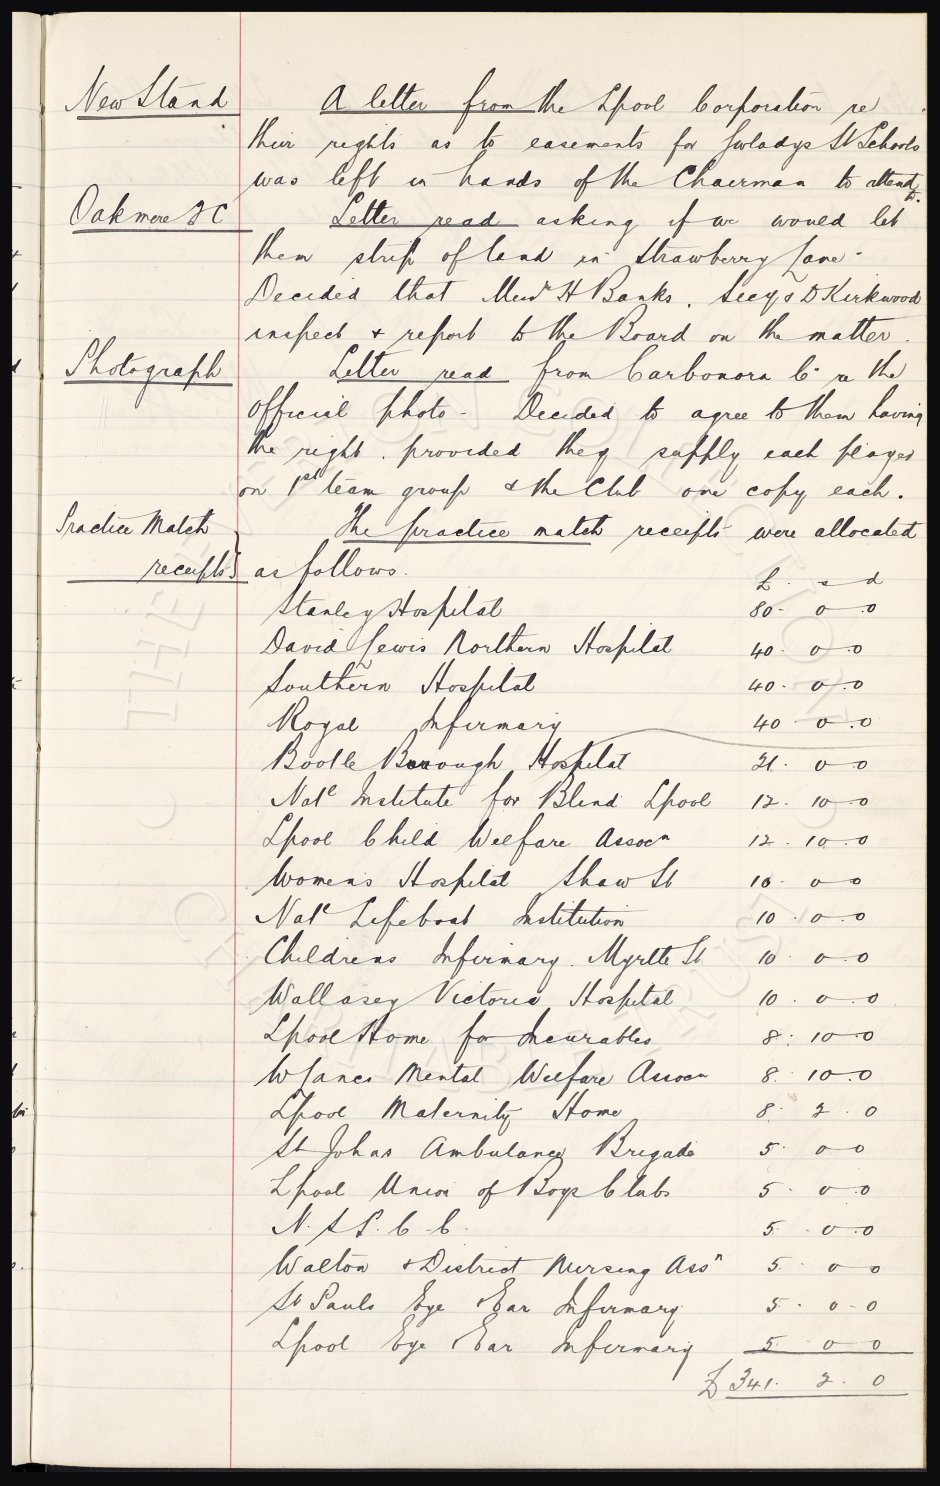 New Stand A letter from the Lpool Corporation re
their rights as to easements for Gwladys St Schools
was left in hands of the Chairman to attend to.
Oakmere F C Letter read asking if we would let
them strip of land in Strawberry Lane.
Decided that Messrs H Banks, Secy & D Kirkwood
inspect & report to the Board on the matter.
Photograph Letter read from Carbonora Co re the
official photo - Decided to agree to them having
the right. provided they supply each player
on 1st team group & the Club one copy each.
Practice Match The practice match receipts were allocated
receipts } as follows.
£ . s d
Stanley Hospital 80 - 0 - 0
David Lewis Northern Hospital 40 . 0 - 0
Southern Hospital 40 - 0 - 0
Royal Infirmary 40 . 0 - 0
Bootle Borough Hospital 21 . 0 - 0
Natl Institute for Blind Lpool 12 . 10 - 0
Lpool Child Welfare Assocn 12 . 10 - 0
Womens Hospital Shaw St 10 - 0 - 0
Natl Lifeboat Institution 10 . 0 - 0
Childrens Infirmary. Myrtle St 10 . 0 - 0
Wallasey Victoria Hospital 10 . 0 - 0
Lpool Home for Incurables 8 : 10 - 0
W Lancs Mental Welfare Assocn 8 . 10 - 0
Lpool Maternity Home 8 . 2 . 0
St Johns Ambulance Brigade 5 . 0 - 0
Lpool Union of Boys Clubs 5 . 0 - 0
N. S P. C. C. 5 . 0 - 0
Walton & District Nursing Assn 5 . 0 0
St Pauls Eye & Ear Infirmary 5 . 0 - 0
Lpool Eye & Ear Infirmary 5 - 0 - 0
£ 341 . 2 . 0